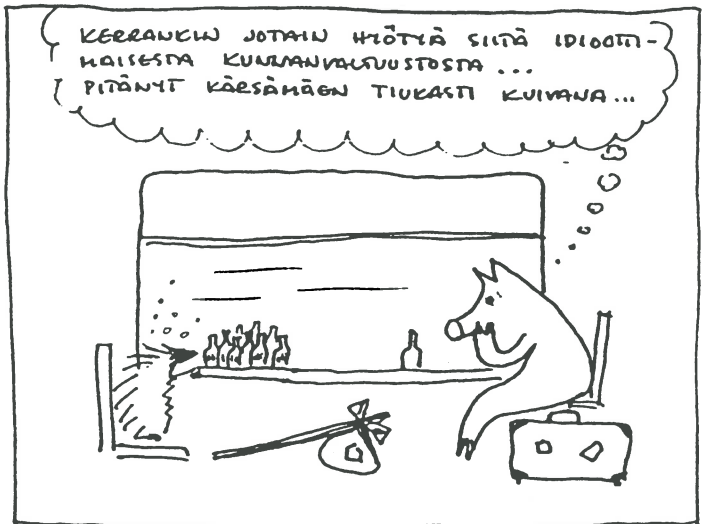 KERRANKIN JOTAIN HYÖTYÄ SIITÄ IDIOOTTI-
MAISESTA KUNNANVALTUUSTOSTA...
PITÄNYT KÄRSÄMÄEN TIUKASTI KUIVANA...